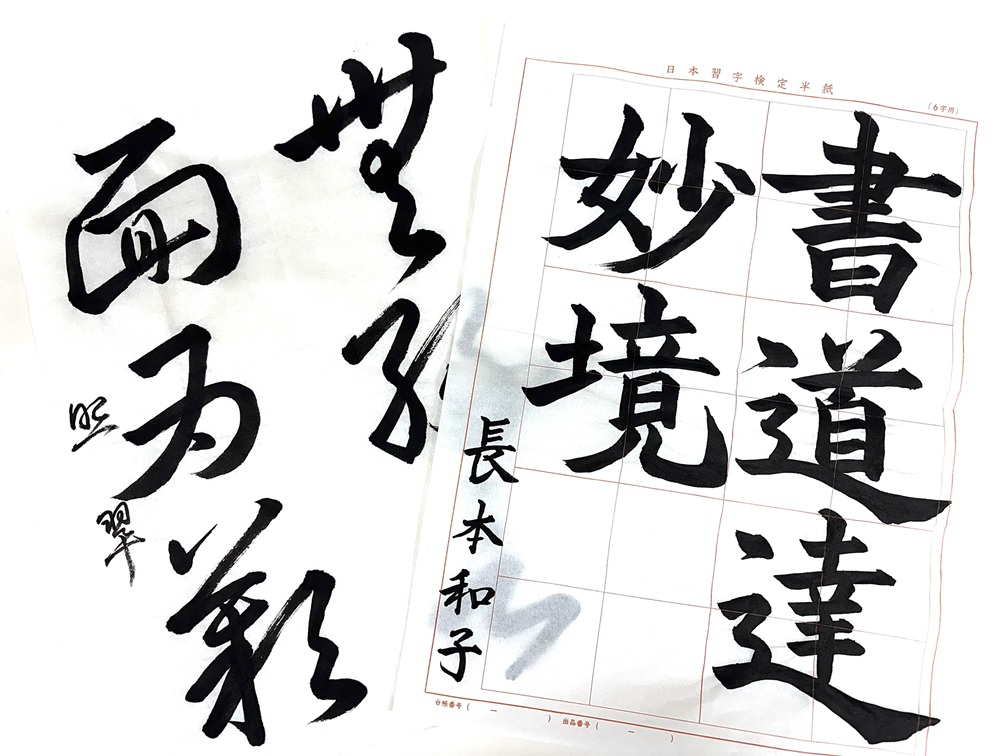 日本習字検定半紙
（6字用）
書道達
妙境
長本和子
台帳番号（　ー　）　出品番号（　ー　）
無
為
照
翠